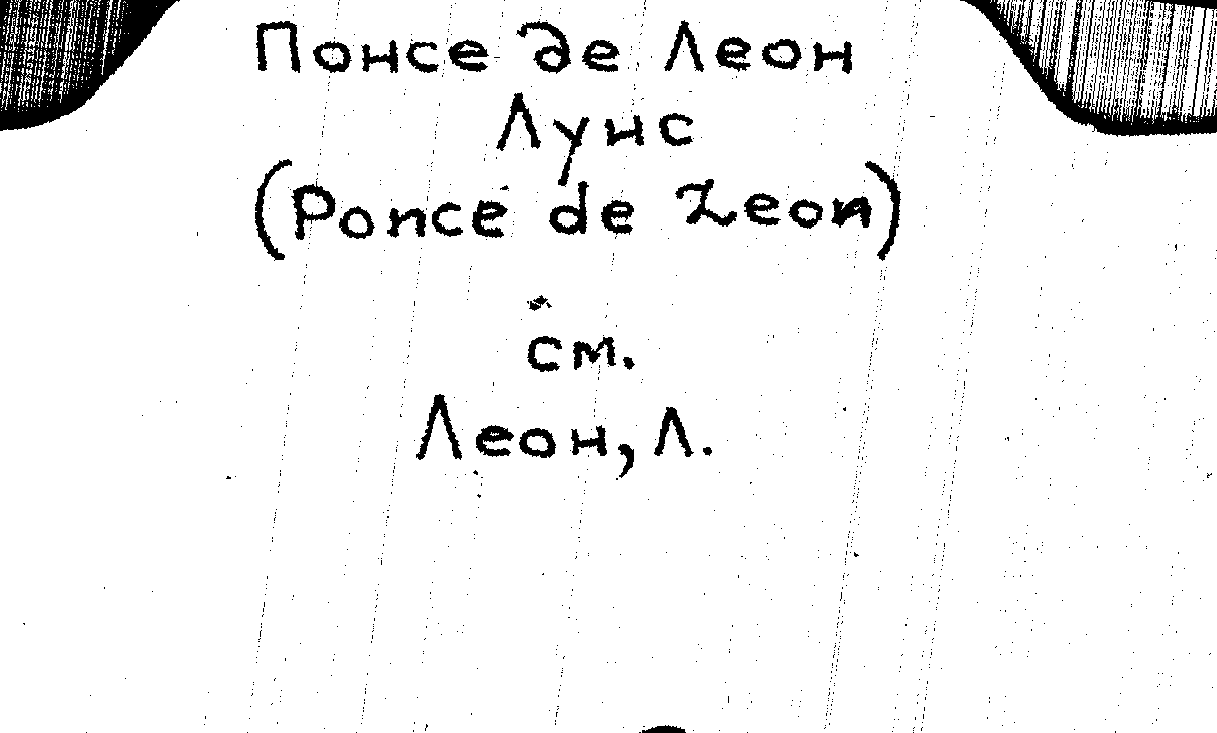 Понсе де Леон
Луис
(Ponce de Leon)
см.
Леон, Л.